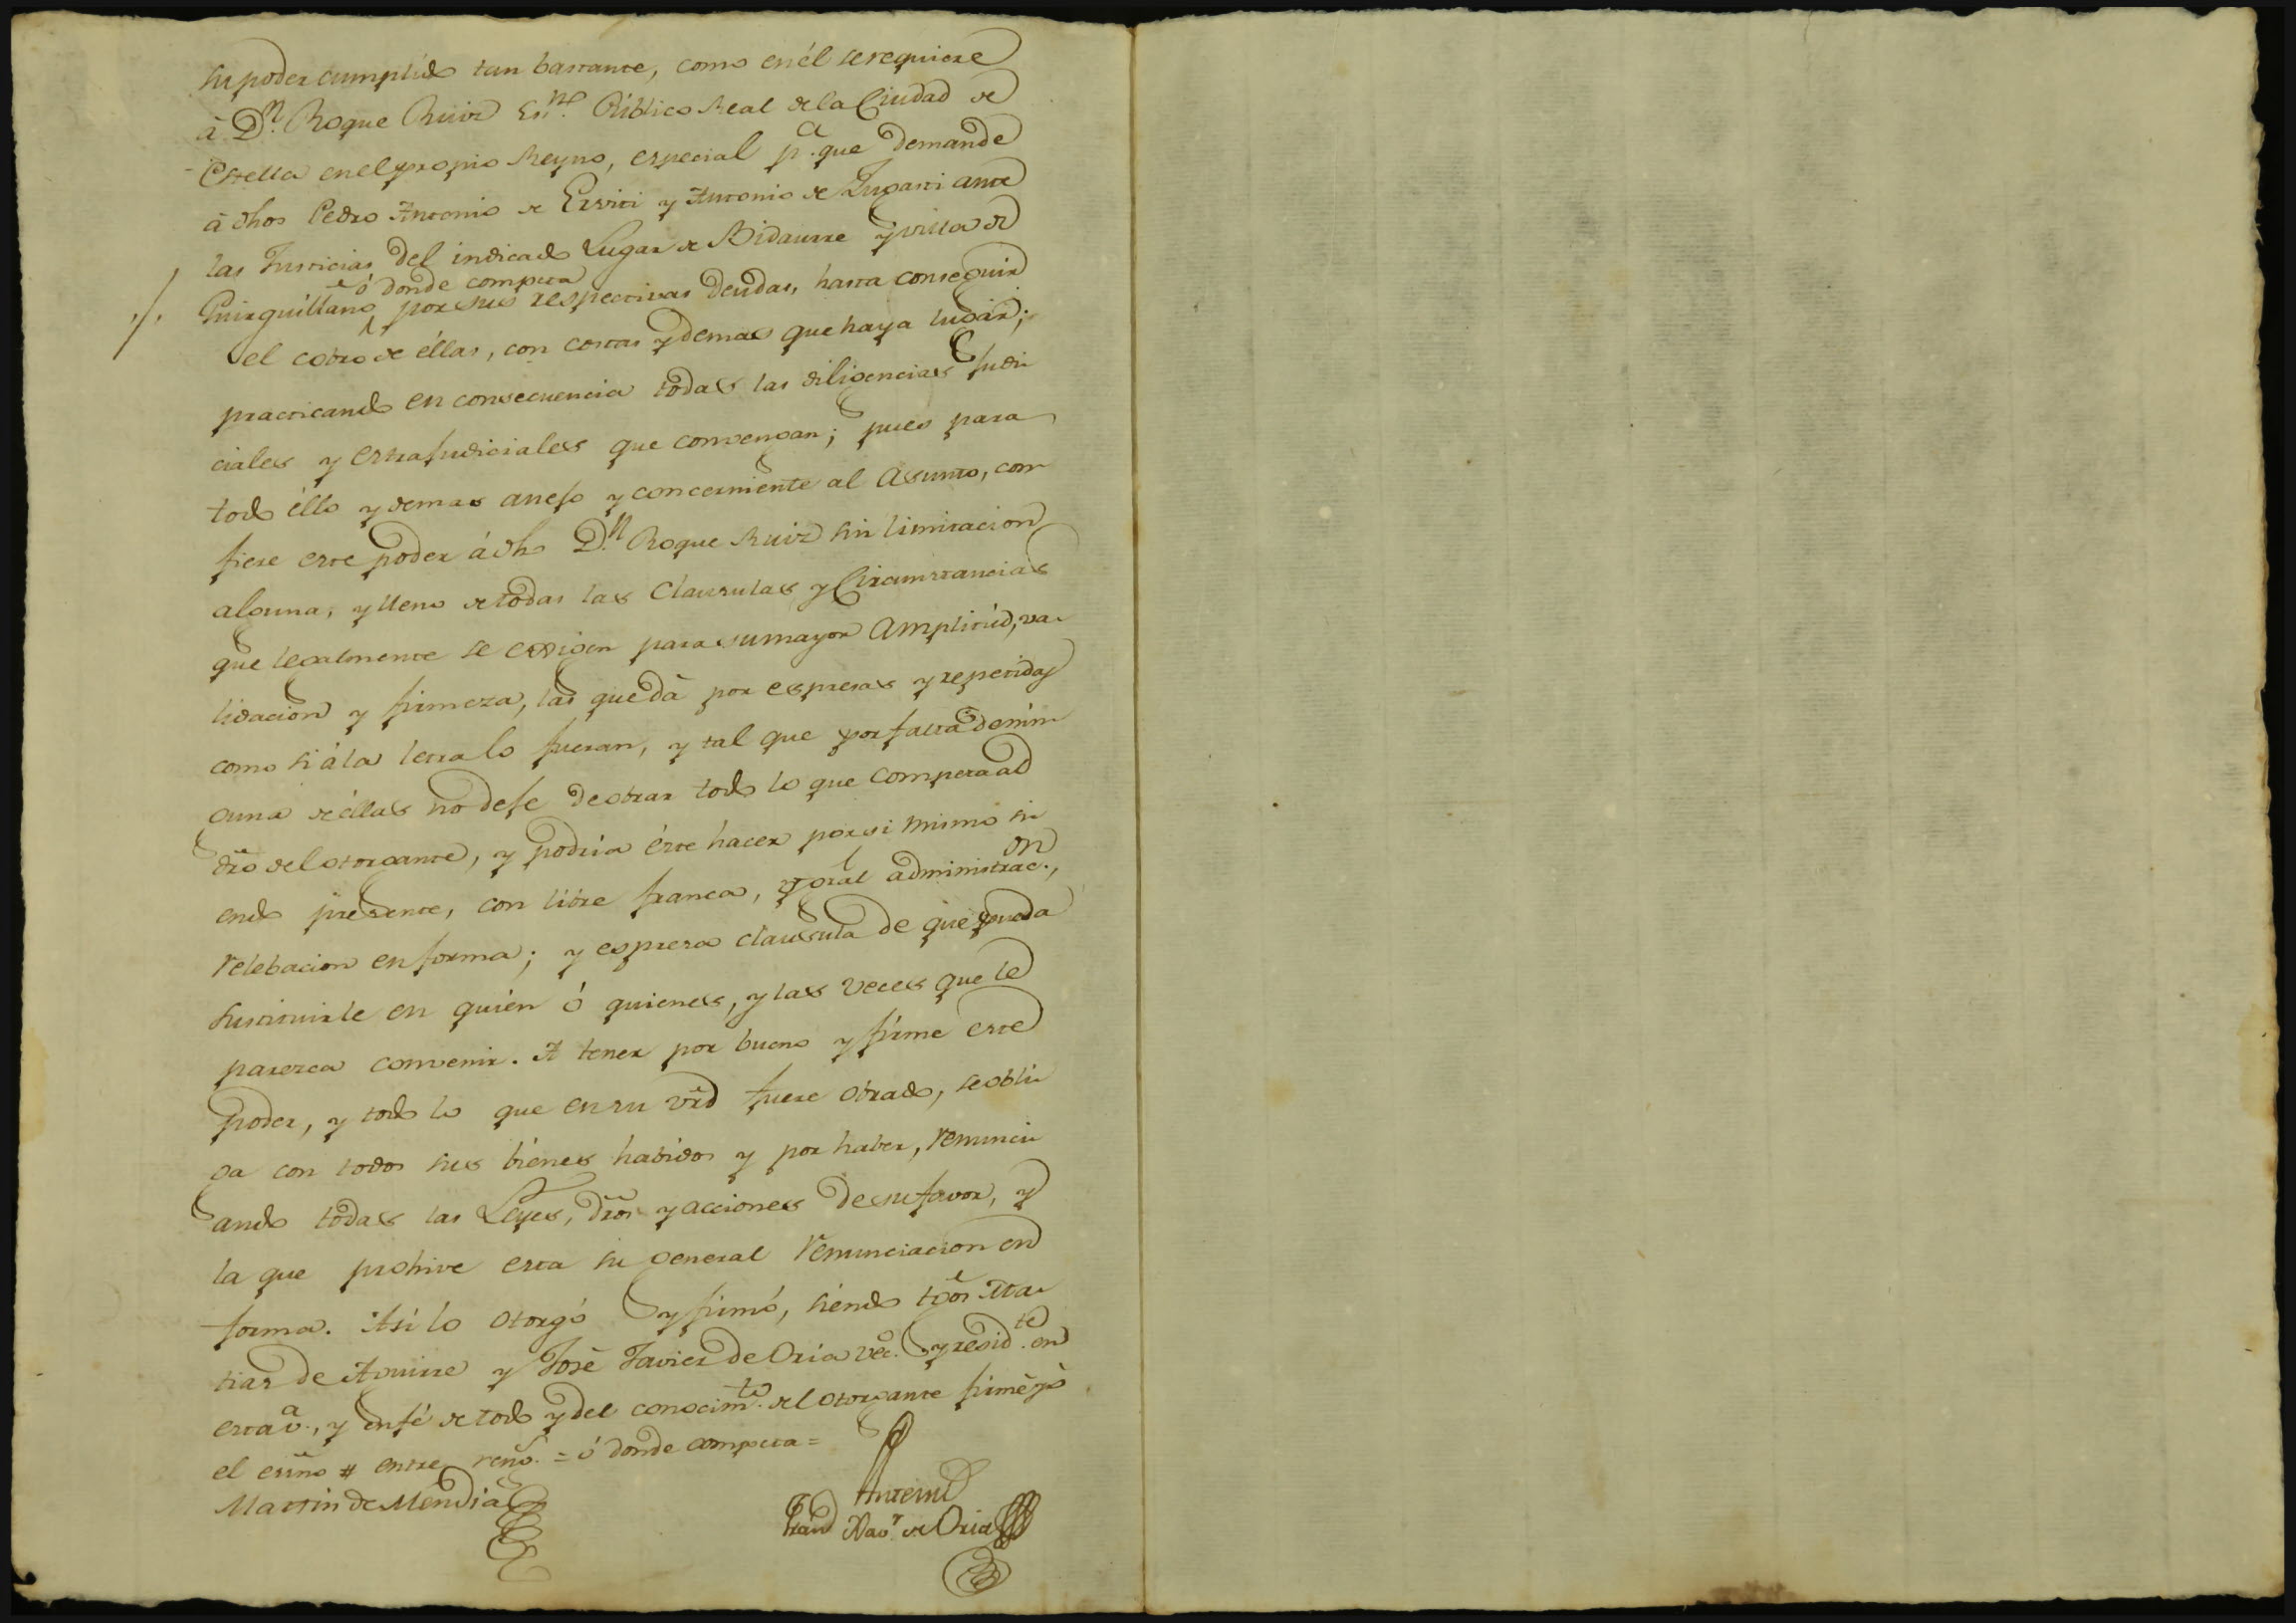 su poder cumplido tan bastante, como en él se requiere
à D.n Roque Ruiz Es.no Público Real de la Ciudad de
Estella en el propio Reyno, especial p.a que demande
à dhos Pedro Antonio de Erviti y Antonio de Lugarti ante
las Justicias del indicado Lugar de Bidaurre y villa de
ò donde competa
Guirguillano, por sus respectivas deudas, hasta conseguir
el cobro de éllas, con costas y demas que haya lugar;
practicando en consecuencia todas las diligencias Judi
ciales y extrajudiciales que convengan; pues para
todo éllo y demas anejo y concerniente al Asunto, con
fiere este poder á dho D.n Roque Ruiz sin limitacion
alguna, y lleno de todas las Clausulas y Circunstancias
que legalmente se exsigen para su mayor amplitúd, va
lidacion y firmeza, las que dà por espresas y repetidas
como si á la letra lo fueran, y tal que por falta de nin
guna de éllas no deje de obrar todo lo que competa al
dro del otorgante, y podria éste hacer por si mismo si
endo presente, con libre franca, y gral administrac.on,
relebacion en forma; y espresa clausula de que pueda
sustituirle en quién ó quienes, y las veces que le
paresca convenir. A tener por bueno y firme este
poder, y todo lo que en su vrd fuere obrado, se obli
ga con todos sus biénes habidos y por haber, renunci
ando todas las Leyes, dros y acciones de su favor, y
la que prohive esta su general renunciacion en
forma. Asi lo otorgó y firmó, siéndo tgos Ma
tias de Aguirre y José Javier de Oria vec.s y resid.te en
esta v.a, y en fé de todo y del conocim.to del otorgante firmé yo
el esno # entre reno. = ó donde competa =
Martin de Mendia
Antemi
Fran.co Xav.r de Oria